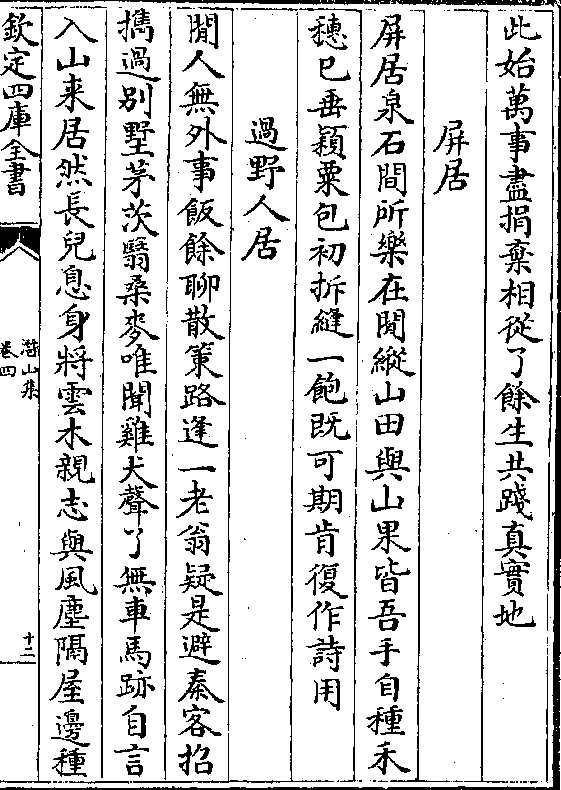 此始萬事盡捐棄相從了餘生共踐真實地
屏居
屏居泉石間所樂在閒縱山田與山果皆吾手自種禾
穗已垂穎粟包初拆縫一飽既可期肯復作詩用
過野人居
閒人無外事飯餘聊散策路逢一老翁疑是避秦客招
擕過别墅茅茨翳桑麥唯聞雞犬聲了無車馬跡自言
入山来居然長兒息身將雲木親志與風塵隔屋邊種
欽定四庫全書
潛山集
卷四
十二